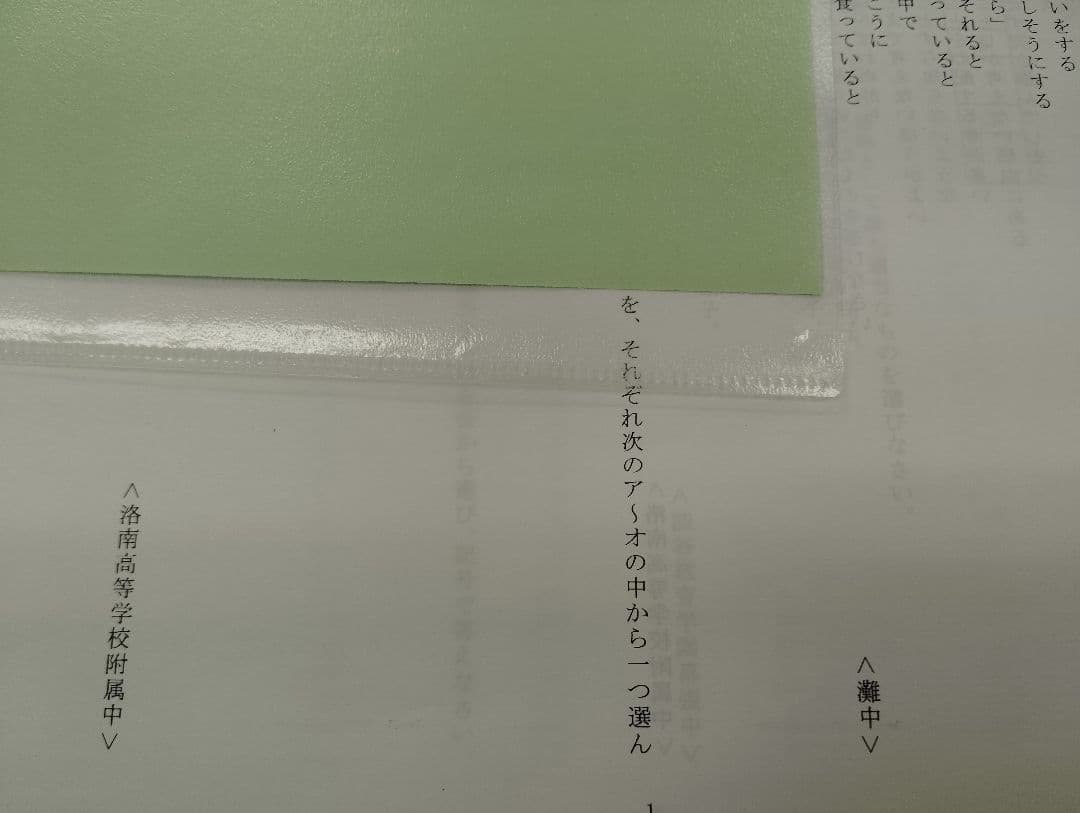 いをする
しそうにする
ら」
それると
っていると
中で
こうに
食っていると
<灘中>
を、それぞれ次のア～オの中から一つ選ん
<洛南高等学校附属中>
1